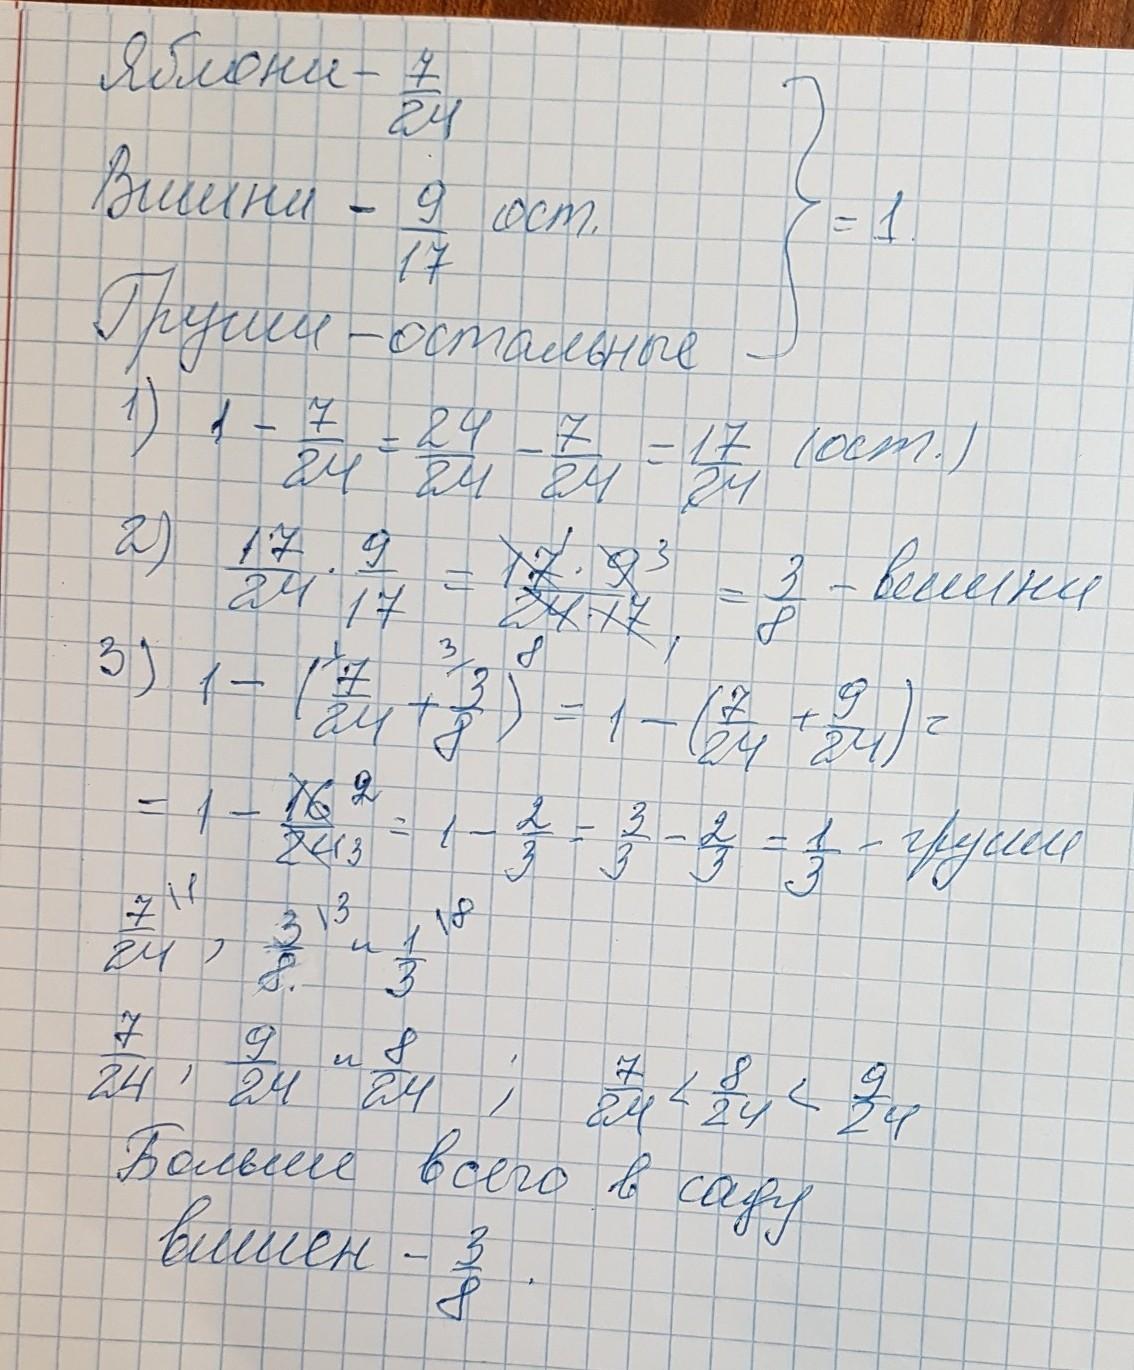 Яблони - 7/24
Вишни - 9/17 ост.
Груши - остальные
} = 1.
1) 1 - 7/24 = 24/24 - 7/24 = 17/24 (ост.)
2) 17/24 · 9/17 = 17¹ · 9³ / 24₈ · 17₁ = 3/8 - вишни
3) 1 - (7/24\1 + 3/8\3) = 1 - (7/24 + 9/24) =
= 1 - 16²/24₃ = 1 - 2/3 = 3/3 - 2/3 = 1/3 - груши
7/24\1, 3/8\3 и 1/3\8
7/24, 9/24 и 8/24 ; 7/24 < 8/24 < 9/24
Больше всего в саду
вишен - 3/8.